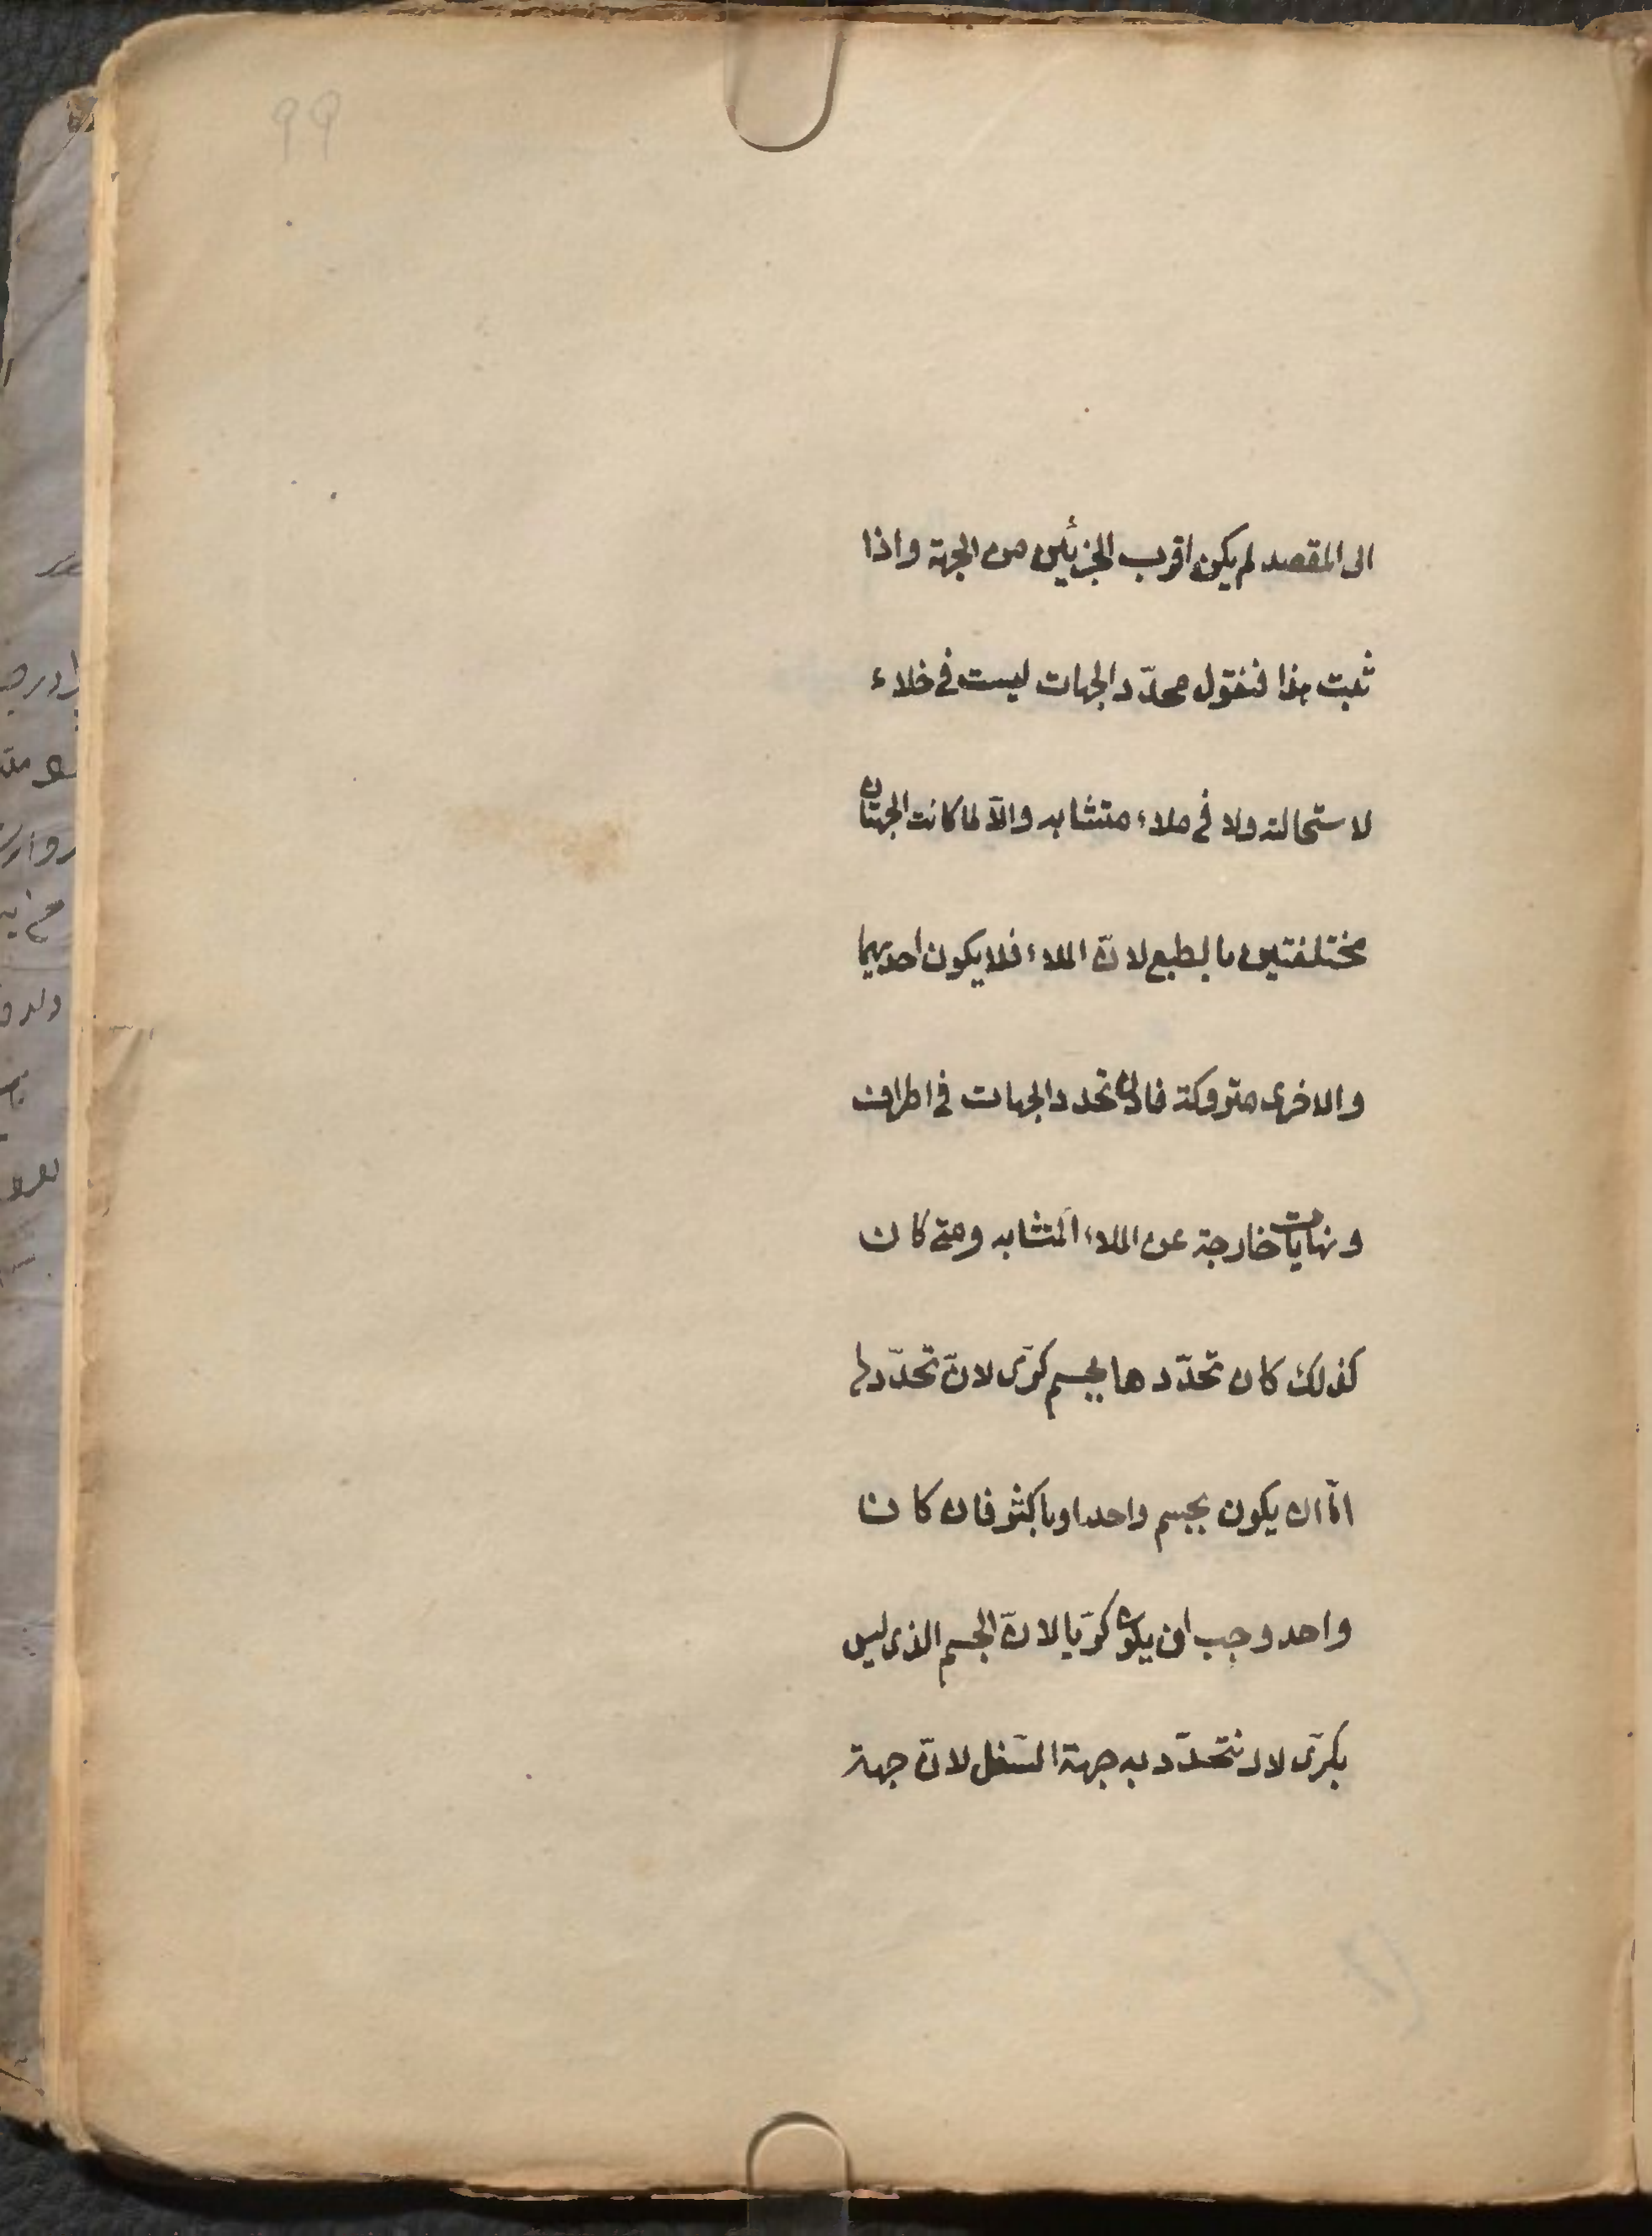 ٩٩
الى المقصد لم يكن اقرب الجزئين من الجهة واذا
ثبت هذا فنقول محدّد الجهات ليست فى خلاء
لاستحالته ولا فى ملاء متشابه والّا لما كانت الجهتان
مختلفتين بالطبع لانّ الملاء فلا يكون احديهما
والاخرى متروكة فاذن تحدد الجهات فى اطراف
ونهايات خارجة عن الملاء المتشابه ومتى كان
كذلك كان تحدّدها بجسم كرّى لانّ تحدّدها
امّا ان يكون بجسم واحد او باكثر فان كان
واحد وجب ان يكون كرّيا لانّ الجسم الذى ليس
بكرّى لا يتحدّد به جهة السّفل لانّ جهة